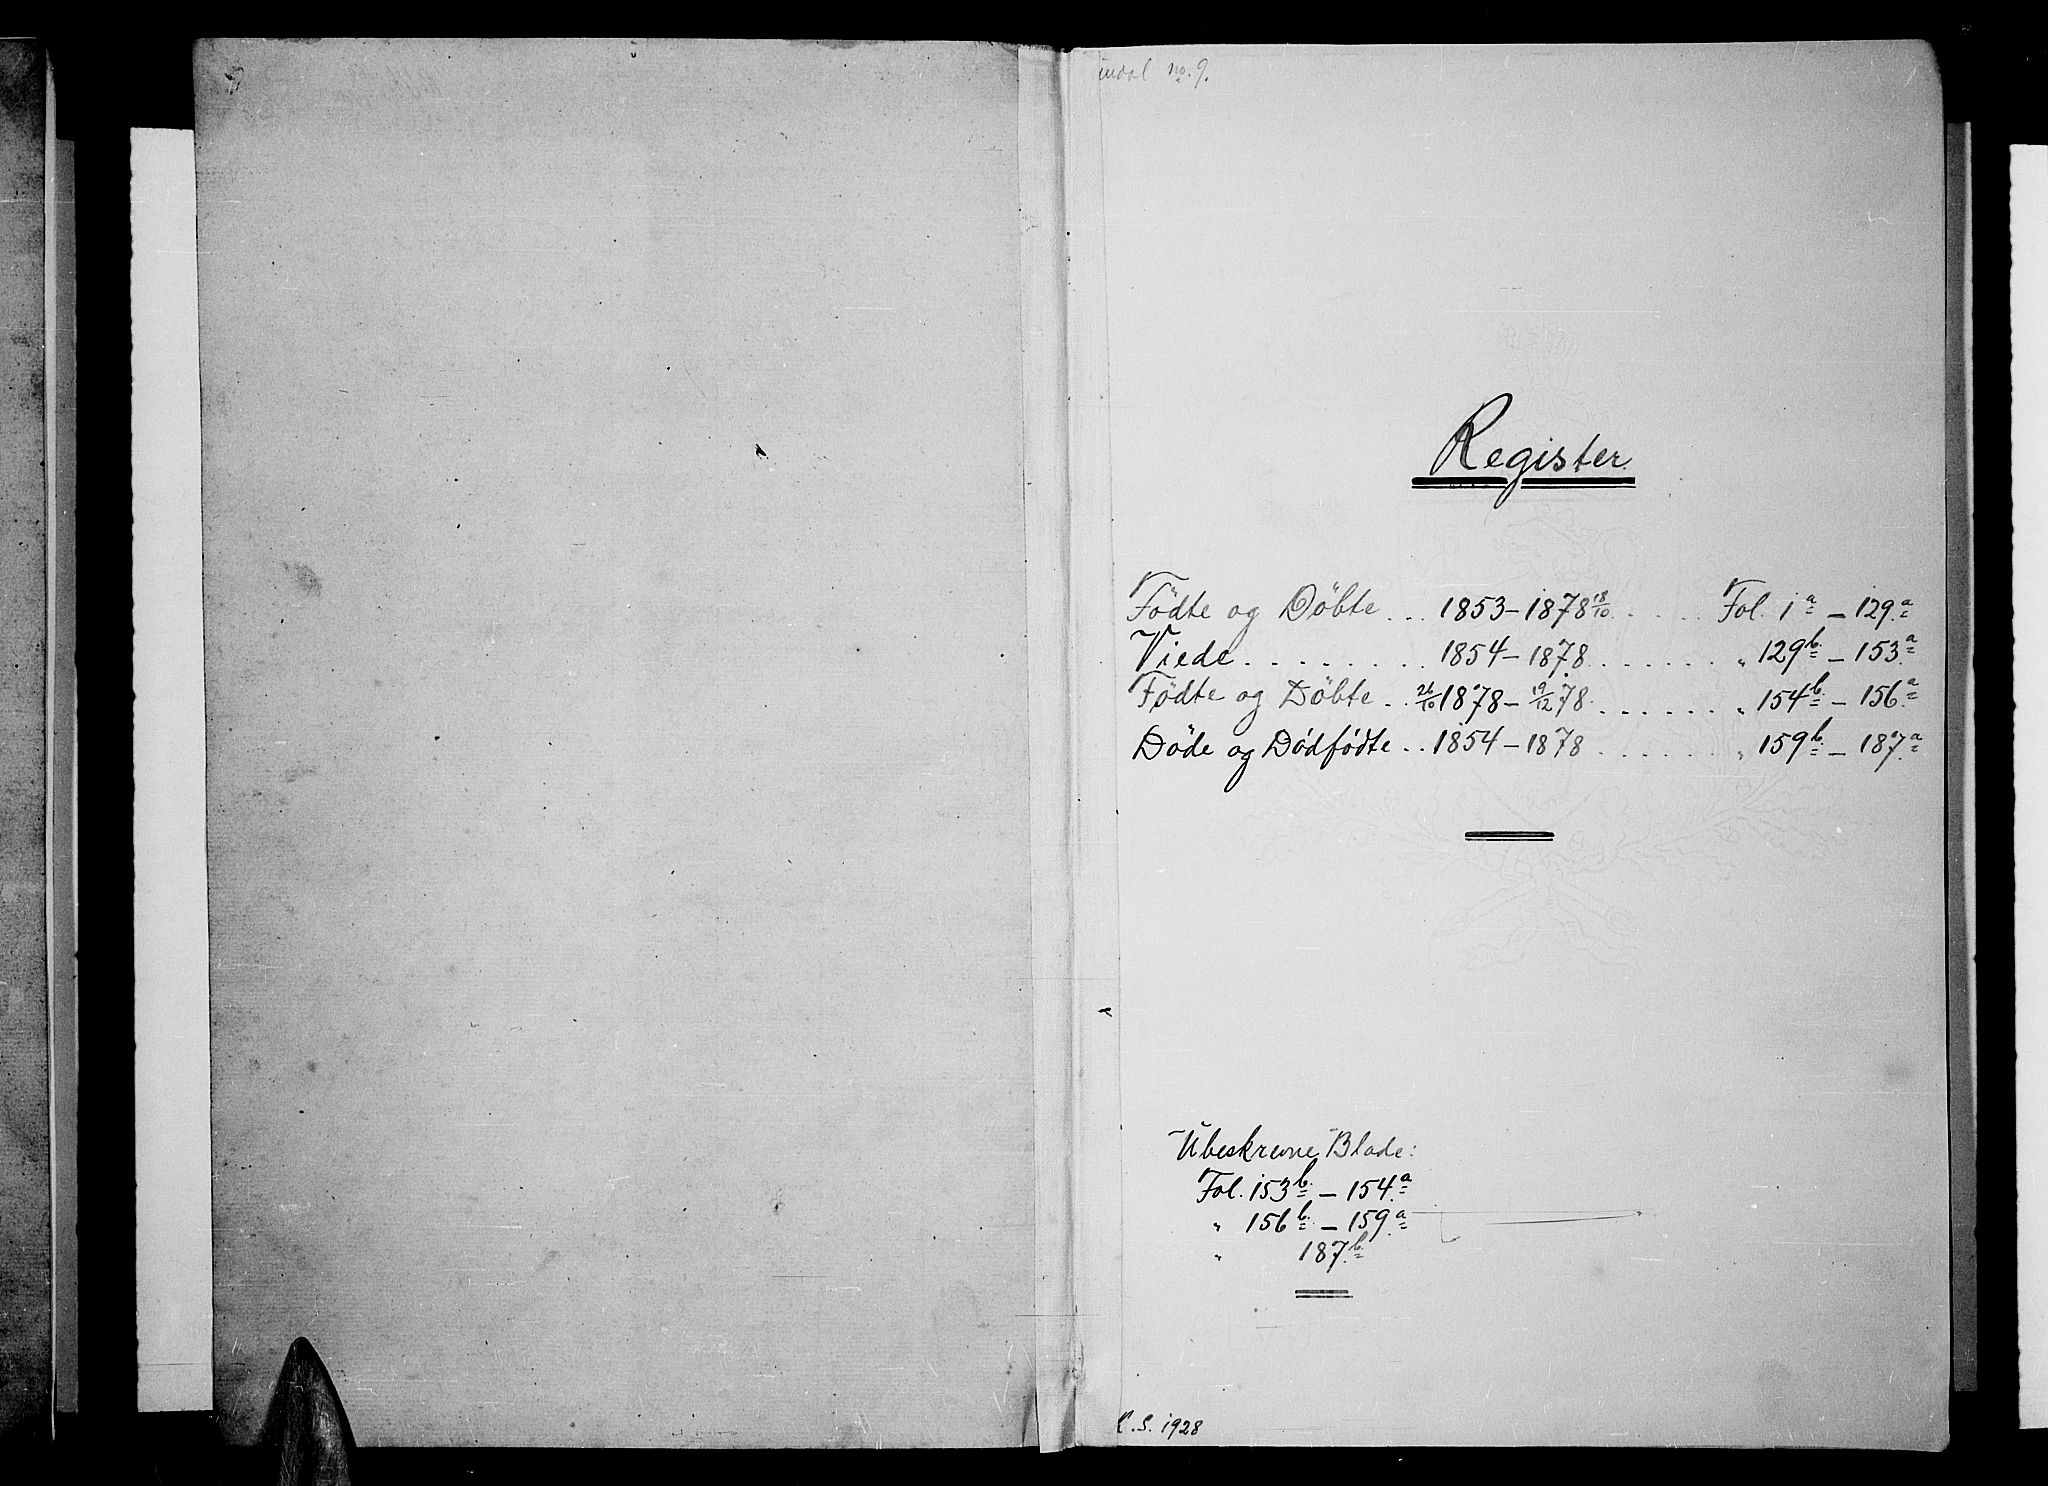 no. 9.
Register
Födte og Döbte . . 1853-1878 18/10 . . . . . Fol. 1a - 129a
Viede . . . . . . . . 1854-1878 . . . . . . . " 129b - 153a
Födte og Döbte . . 26/10 1878 - 19/12 78 . . . . . . " 154b - 156a
Döde og Dödfödte . . 1854-1878 . . . . . . . " 159b - 187a
Ubeskrevne Blade:
Fol. 153b - 154a
" 156b - 159a
" 187b
S. 1928